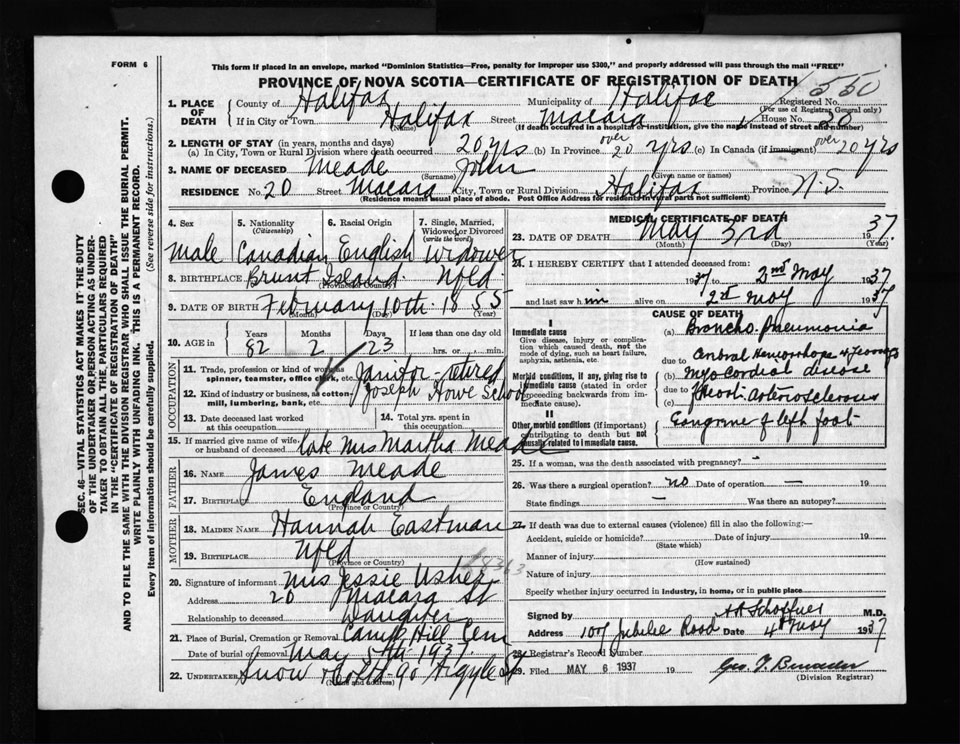 FORM 6
This form if placed in an envelope, marked "Dominion Statistics—Free, penalty for improper use $300," and properly addressed will pass through the mail "FREE"
PROVINCE OF NOVA SCOTIA—CERTIFICATE OF REGISTRATION OF DEATH
550
1. PLACE OF DEATH County of Halifax Municipality of Halifax Registered No.
(For use of Registrar General only)
If in City or Town Halifax Street Macara House No. 20
(Name) (If death occurred in a hospital or institution, give the name instead of street and number)
2. LENGTH OF STAY (in years, months and days)
(a) In City, Town or Rural Division where death occurred 20 yrs (b) In Province over 20 yrs (c) In Canada (if immigrant) over 20 yrs
3. NAME OF DECEASED Meade John
(Surname) (Given name or names)
RESIDENCE No. 20 Street Macara City, Town or Rural Division Halifax Province N.S.
(Residence means usual place of abode. Post Office Address for residents in rural parts not sufficient)
4. Sex 5. Nationality (Citizenship) 6. Racial Origin 7. Single, Married, Widowed or Divorced (write the word)
Male Canadian English Widower
8. BIRTHPLACE Brunt Island. Nfld.
(Province or Country)
9. DATE OF BIRTH February 10th. 1855
(Month) (Day) (Year)
10. AGE in Years Months Days If less than one day old
82 2 23 hrs. or min.
OCCUPATION
11. Trade, profession or kind of work as spinner, teamster, office clerk, etc. Janitor-retired
12. Kind of industry or business, as cotton-mill, lumbering, bank, etc. Joseph Howe School
13. Date deceased last worked at this occupation
14. Total yrs. spent in this occupation
15. If married give name of wife or husband of deceased late Mrs Martha Meade
FATHER
16. NAME James Meade
17. BIRTHPLACE England
(Province or Country)
MOTHER
18. MAIDEN NAME Hannah Eastman
19. BIRTHPLACE Nfld
(Province or Country)
20. Signature of informant Mrs Jessie Usher
Address 20 Macara St
Relationship to deceased Daughter
21. Place of Burial, Cremation or Removal Camp Hill Cem
Date of burial or removal May 5th 1937.
22. UNDERTAKER Snow & Co Ltd-90 Argyle St
(Name and address)
MEDICAL CERTIFICATE OF DEATH
23. DATE OF DEATH May 3rd 1937.
(Month) (Day) (Year)
24. I HEREBY CERTIFY that I attended deceased from:
1937 to 2nd May 1937
and last saw him alive on 2nd May 1937
CAUSE OF DEATH
I
Immediate cause
Give disease, injury or complication which caused death, not the mode of dying, such as heart failure, asphyxia, asthenia, etc.
(a) Broncho Pneumonia
due to
Morbid conditions, if any, giving rise to immediate cause (stated in order proceeding backwards from immediate cause).
(b) Myocardial disease
due to
(c) arteriosclerosis
II
Other morbid conditions (if important) contributing to death but not causally related to immediate cause.
Gangrene of left foot
25. If a woman, was the death associated with pregnancy? -
26. Was there a surgical operation? no Date of operation — 19
State findings — Was there an autopsy?
27. If death was due to external causes (violence) fill in also the following:—
Accident, suicide or homicide? Date of injury 19
(State which)
Manner of injury
(How sustained)
Nature of injury
Specify whether injury occurred in industry, in home, or in public place
Signed by M.D.
Address 107 Jubilee Road Date 4th May 1937
28. Registrar's Record Number
29. Filed MAY 6 1937 19
(Division Registrar)
SEC. 46—VITAL STATISTICS ACT MAKES IT THE DUTY
OF THE UNDERTAKER OR PERSON ACTING AS UNDER-
TAKER TO OBTAIN ALL THE PARTICULARS REQUIRED
IN THE "CERTIFICATE OF REGISTRATION OF DEATH"
AND TO FILE THE SAME WITH THE DIVISION REGISTRAR WHO SHALL ISSUE THE BURIAL PERMIT.
WRITE PLAINLY WITH UNFADING INK. THIS IS A PERMANENT RECORD.
Every item of information should be carefully supplied. (See reverse side for instructions.)